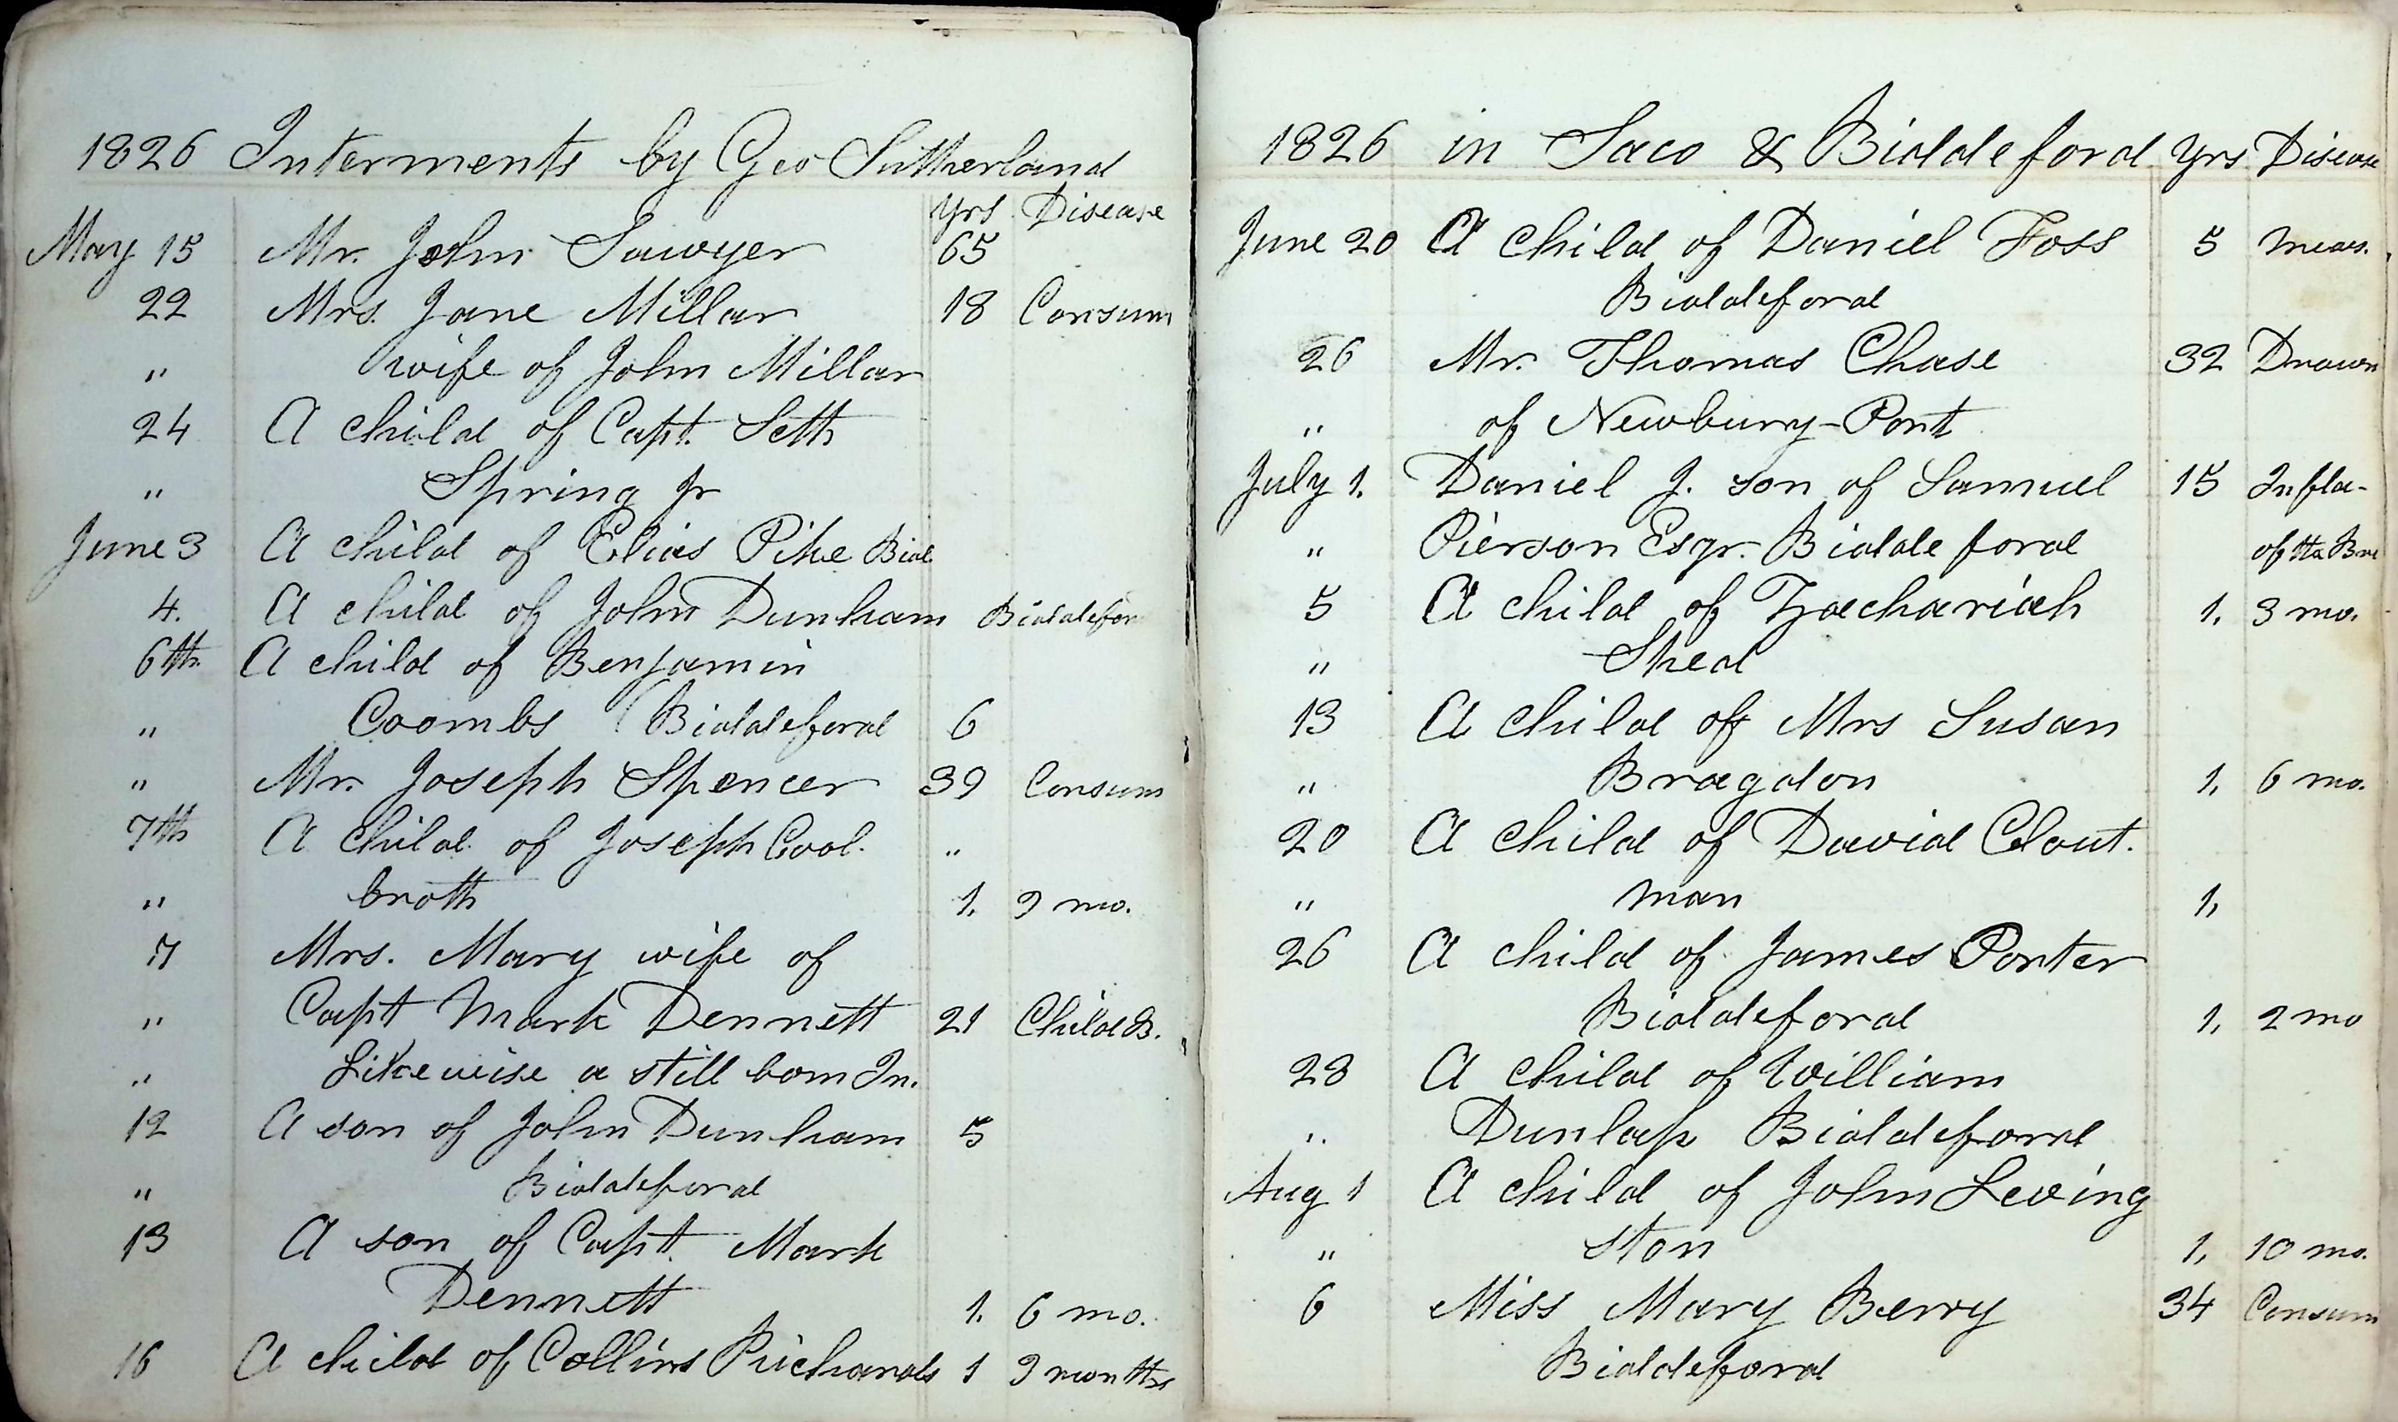 1826 Interments by Geo Sutherland
Yrs Disease
May 15 Mr. John Sawyer 65
22 Mrs. Jane Millar 18 Consum
" wife of John Millar
24 A child of Capt. Seth
" Spring Jr
June 3 A child of Elias Pike Bid.
4. A child of John Dunham Biddefor
6th A child of Benjamin
" Coombs (Biddeford 6
" Mr. Joseph Spencer 39 Consum
7th A child of Joseph Cool- "
" broth 1. 9 mo.
7 Mrs. Mary wife of
" Capt Mark Dennett 21 Child B.
" Likewise a still born In.
12 A son of John Dunham 5
" Biddeford
13 A son of Capt. Mark
Dennett 1. 6 mo.
16 A child of Collins Richards 1 9 months
1826 in Saco & Biddeford Yrs Disease
June 20 A child of Daniel Foss 5 meas.
Biddeford
26 Mr. Thomas Chase 32 Drown
" of Newbury-Port
July 1. Daniel J. son of Samuel 15 Infla-
" Pierson Esqr. Biddeford of the
5 A child of Zachariah 1. 3 mo.
" Shed
13 A child of Mrs Susan
" Bragdon 1. 6 mo.
20 A child of David Clout-
" man 1,
26 A child of James Porter
Biddeford 1, 2 mo
28 A child of William
" Dunlap Biddeford
Aug 1 A child of John Leving
" ston 1, 10 mo.
6 Miss Mary Berry 34 Consum
Biddeford